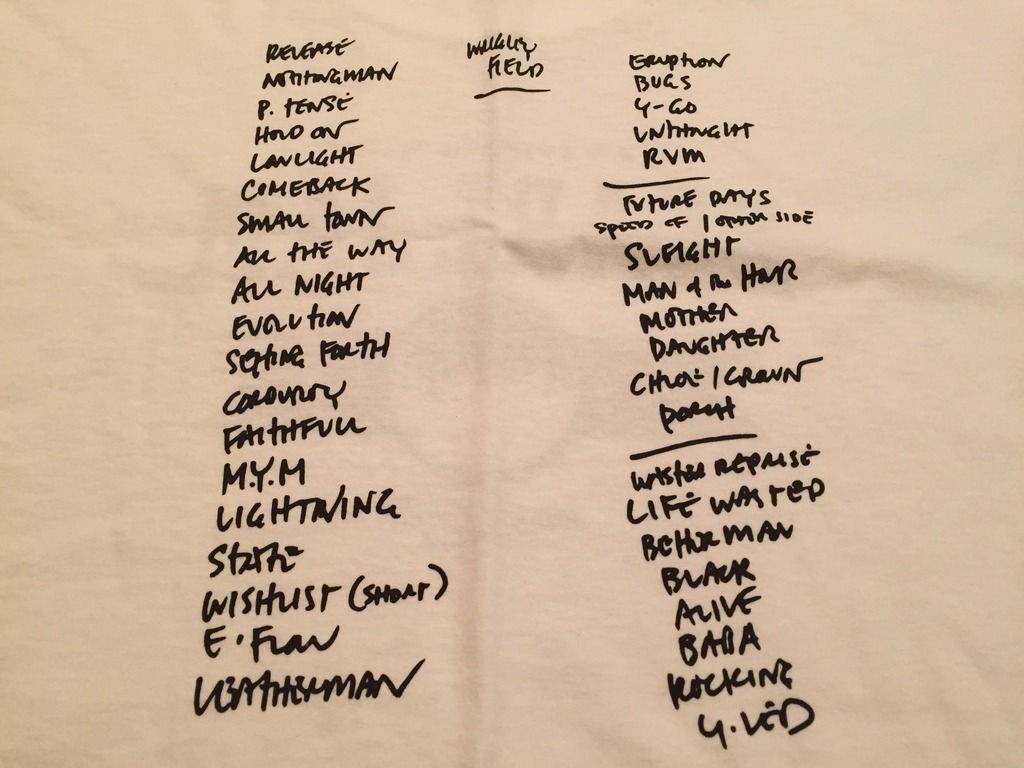 WRIGLEY
FIELD
RELEASE
NOTHINGMAN
P. TENSE
HOLD ON
LOWLIGHT
COMEBACK
SMALL TOWN
ALL THE WAY
ALL NIGHT
EVOLUTION
SETTING FORTH
CORDUROY
FAITHFULL
M.Y.M
LIGHTNING
STATE
WISHLIST (SHORT)
E. FLOW
LEATHERMAN
ERUPTION
BUGS
Y-GO
UNTHOUGHT
RVM
FUTURE DAYS
SPEED OF / OTHER SIDE
SLEIGHT
MAN of the HOUR
MOTHER
DAUGHTER
CHLOE / CROWN
PORCH
WASTED REPRISE
LIFE WASTED
BETTERMAN
BLACK
ALIVE
BABA
ROCKING
Y. LED